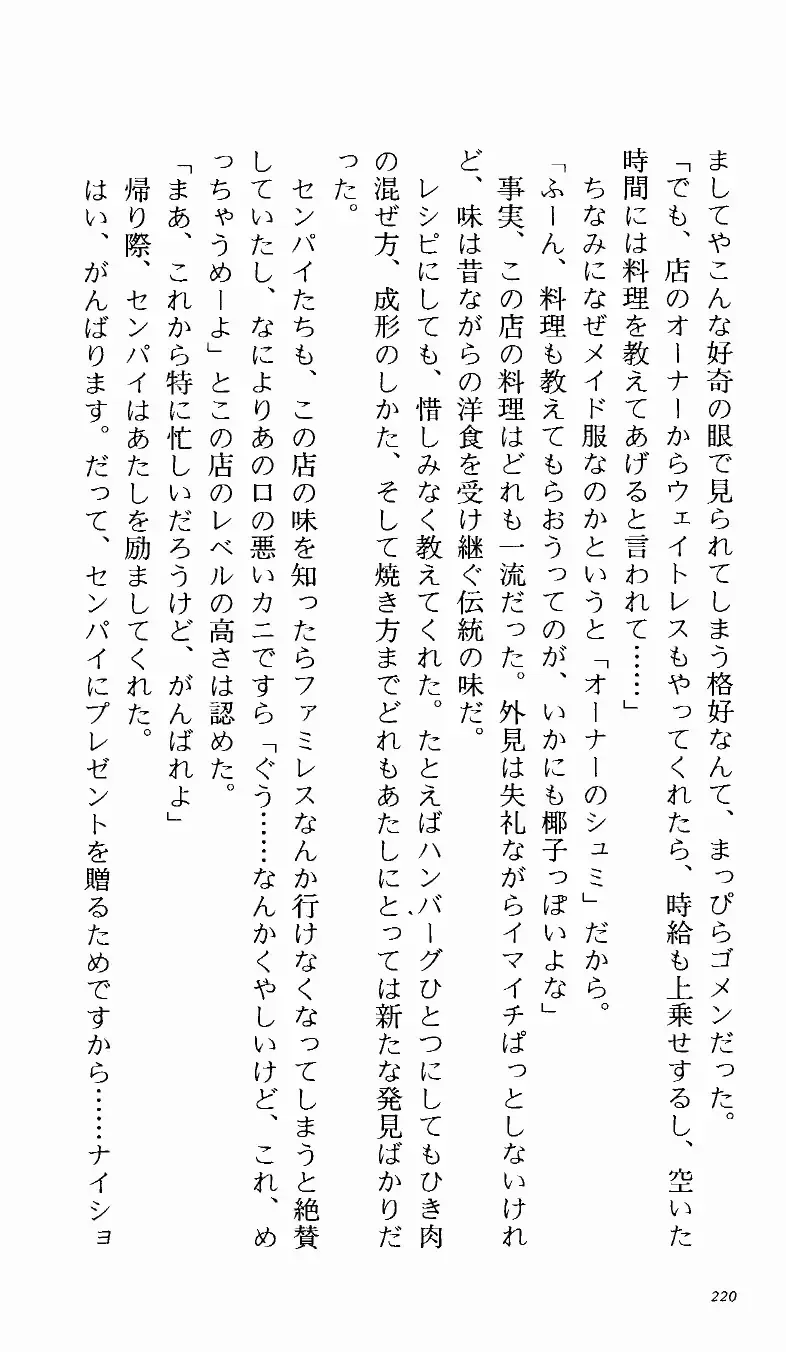 ましてやこんな好奇の眼で見られてしまう格好なんて、まっぴらゴメンだった。
「でも、店のオーナーからウェイトレスもやってくれたら、時給も上乗せするし、空いた
時間には料理を教えてあげると言われて……」
ちなみになぜメイド服なのかというと「オーナーのシュミ」だから。
「ふーん、料理も教えてもらおうってのが、いかにも椰子っぽいよな」
事実、この店の料理はどれも一流だった。外見は失礼ながらイマイチぱっとしないけれ
ど、味は昔ながらの洋食を受け継ぐ伝統の味だ。
レシピにしても、惜しみなく教えてくれた。たとえばハンバーグひとつにしてもひき肉
の混ぜ方、成形のしかた、そして焼き方までどれもあたしにとっては新たな発見ばかりだ
った。
センパイたちも、この店の味を知ったらファミレスなんか行けなくなってしまうと絶賛
していたし、なによりあの口の悪いカニですら「ぐう……なんかくやしいけど、これ、め
っちゃうめーよ」とこの店のレベルの高さは認めた。
「まあ、これから特に忙しいだろうけど、がんばれよ」
帰り際、センパイはあたしを励ましてくれた。
はい、がんばります。だって、センパイにプレゼントを贈るためですから……ナイショ
220